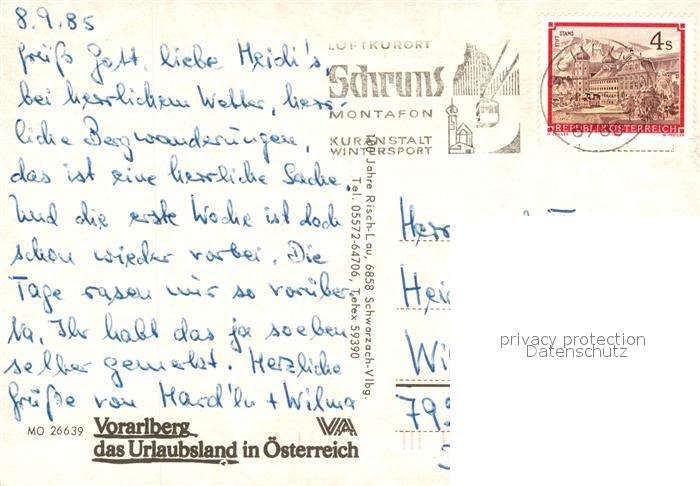 8.9.85
Grüß Gott, liebe Heidi's,
bei herrlichem Wetter, herr-
liche Bergwanderungen,
das ist eine herrliche Sache.
Und die erste Woche ist doch
schon wieder vorbei. Die
Tage rasen nur so vorüber.
Na, Ihr habt das ja soeben
selber gemerkt. Herzliche
Grüße von Hard'ln + Wilma
MO 26639
Vorarlberg
das Urlaubsland in Österreich
VA
LUFTKURORT
Schruns
MONTAFON
KURANSTALT
WINTERSPORT
STIFT STAMS
4 S
REPUBLIK ÖSTERREICH
Jahre Risch-Lau, 6858 Schwarzach-Vlbg.
Tel. 05572-64706, Telex 59390
Herr
Hei
Wi
79
privacy protection
Datenschutz